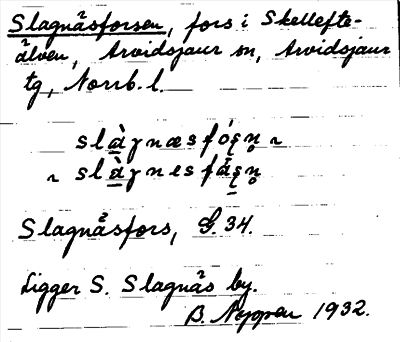 Slagnäsforsen, fors i Skellefte-
älven, Arvidsjaur sn, Arvidsjaur
tg, Norrb. l.
slàgnæsfó̜ṣn̥ ~
~ slàgnesfǻ̜ṣn̥
Slagnåsfors, G. 34.
Ligger S. Slagnäs by.
B. 1932.